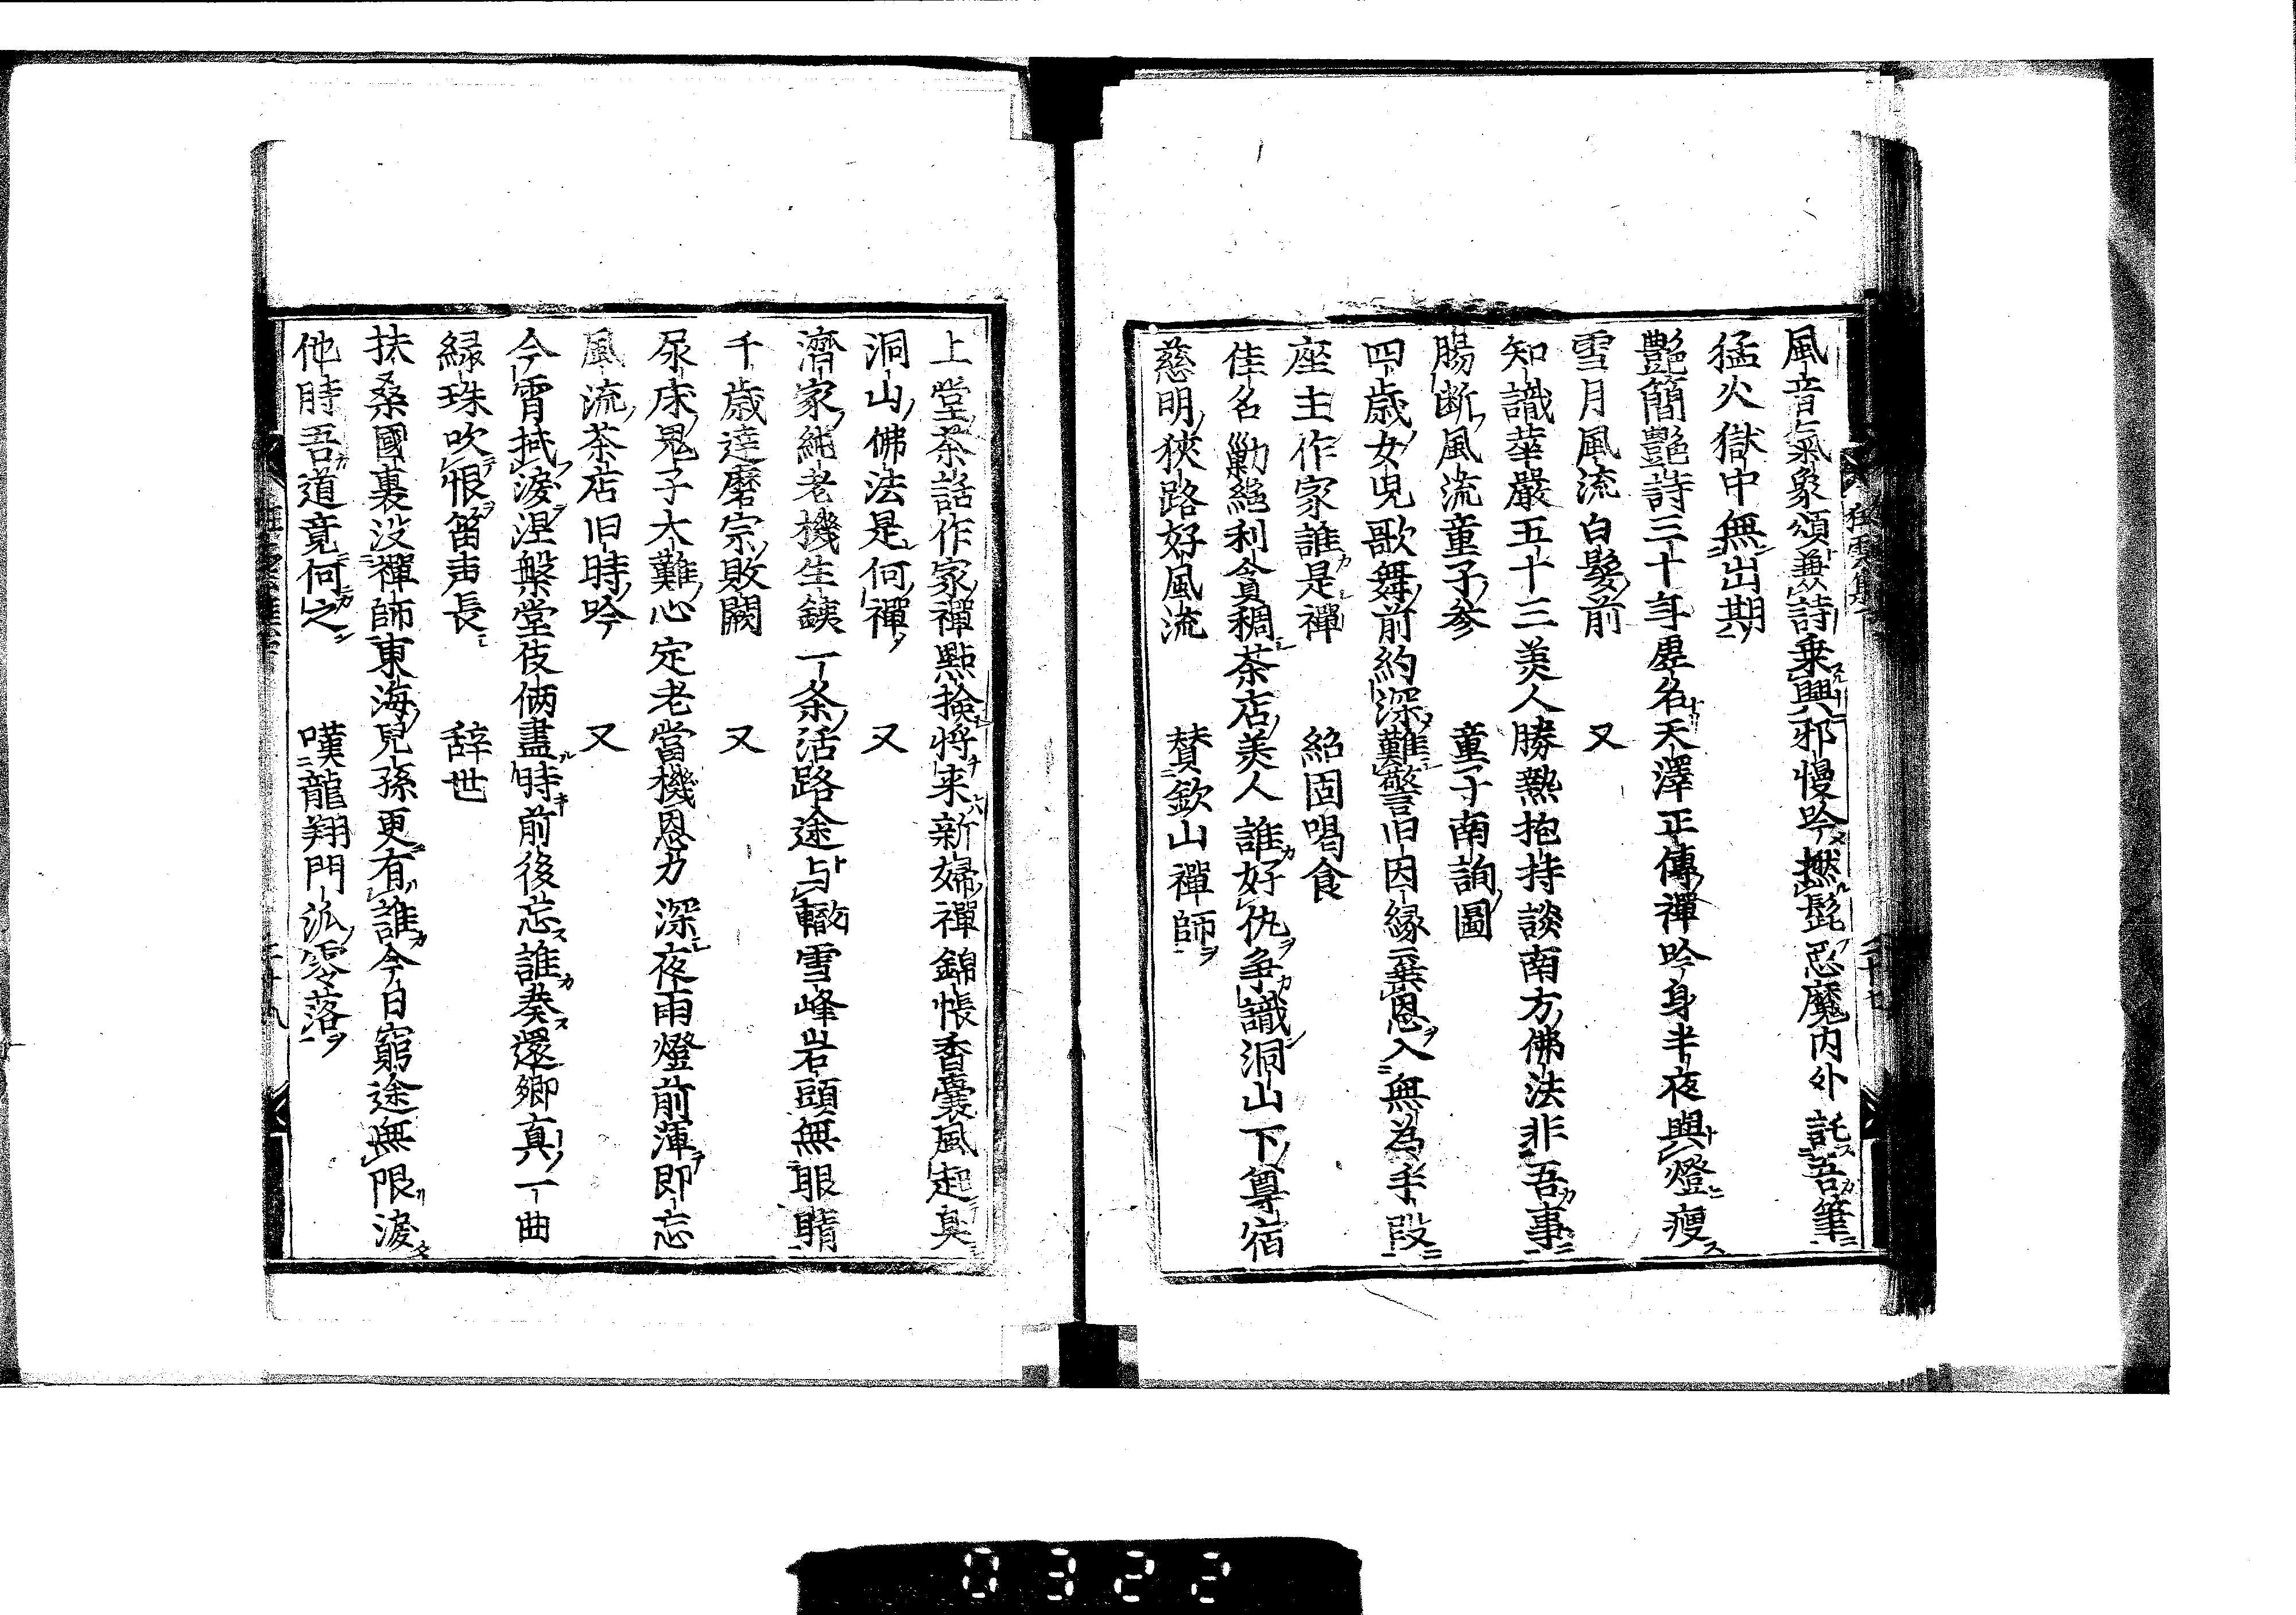 風音氣象頌兼詩乗興邪慢吟撚髭忍魔内外託吾筆
猛火獄中無出期
艶簡艶詩三十年虚名天澤正傳禪吟身半夜與燈瘦
雪月風流白髮前　又
知識華嚴五十三美人勝熱抱持談南方佛法非吾事
腸断風流童子参　童子南詢圖
四歳女兒歌舞前約深難警旧因縁棄恩入無為手段
座主作家誰是禪　紹固喝食
佳名勦絶利貪稠茶店美人誰好仇争識洞山下尊宿
慈明狹路好風流　賛欽山禪師
上堂茶話作家禪點撿将来新婦禪錦帳香囊風起臭
洞山佛法是何禪　又
濟家純老機生銕一条活路途与轍雪峰岩頭無眼睛
千歳達磨宗敗闕　又
尿床鬼子太難心定老當機恩力深夜雨燈前渾即忘
風流茶店旧時吟　又
今宵拭涙涅槃堂伎倆盡時前後忘誰奏還郷真一曲
緑珠吹恨笛声長　辞世
扶桑國裏没禪師東海兒孫更有誰今日窮途無限涙
他時吾道竟何之　嘆龍翔門派零落
0322